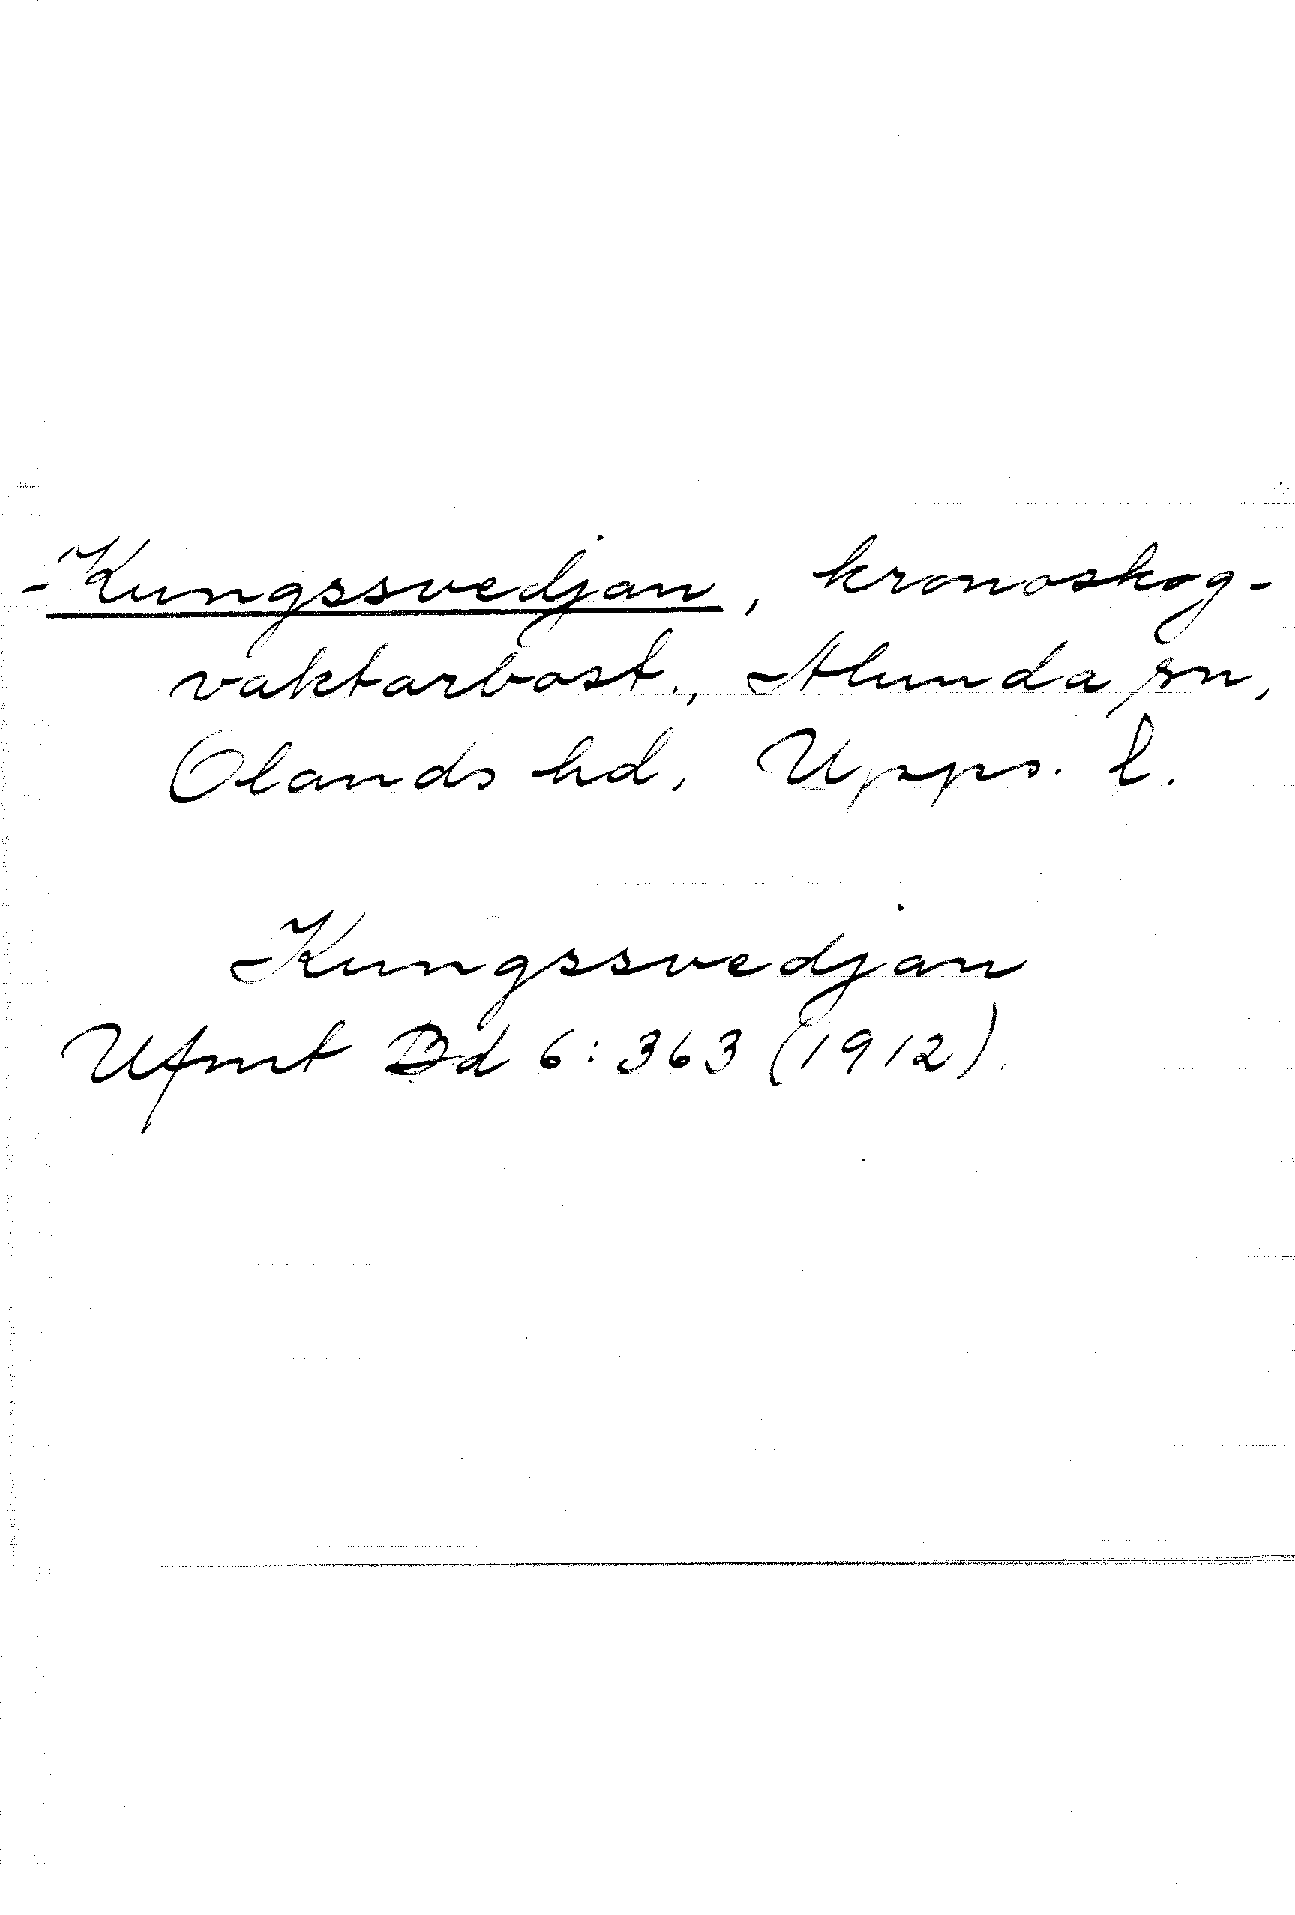 Kungssvedjan, kronoskog-
vaktarbost., Alunda sn,
Olands hd, Upps. l.
Kungssvedjan
Ufmt Bd 6:363 (1912).